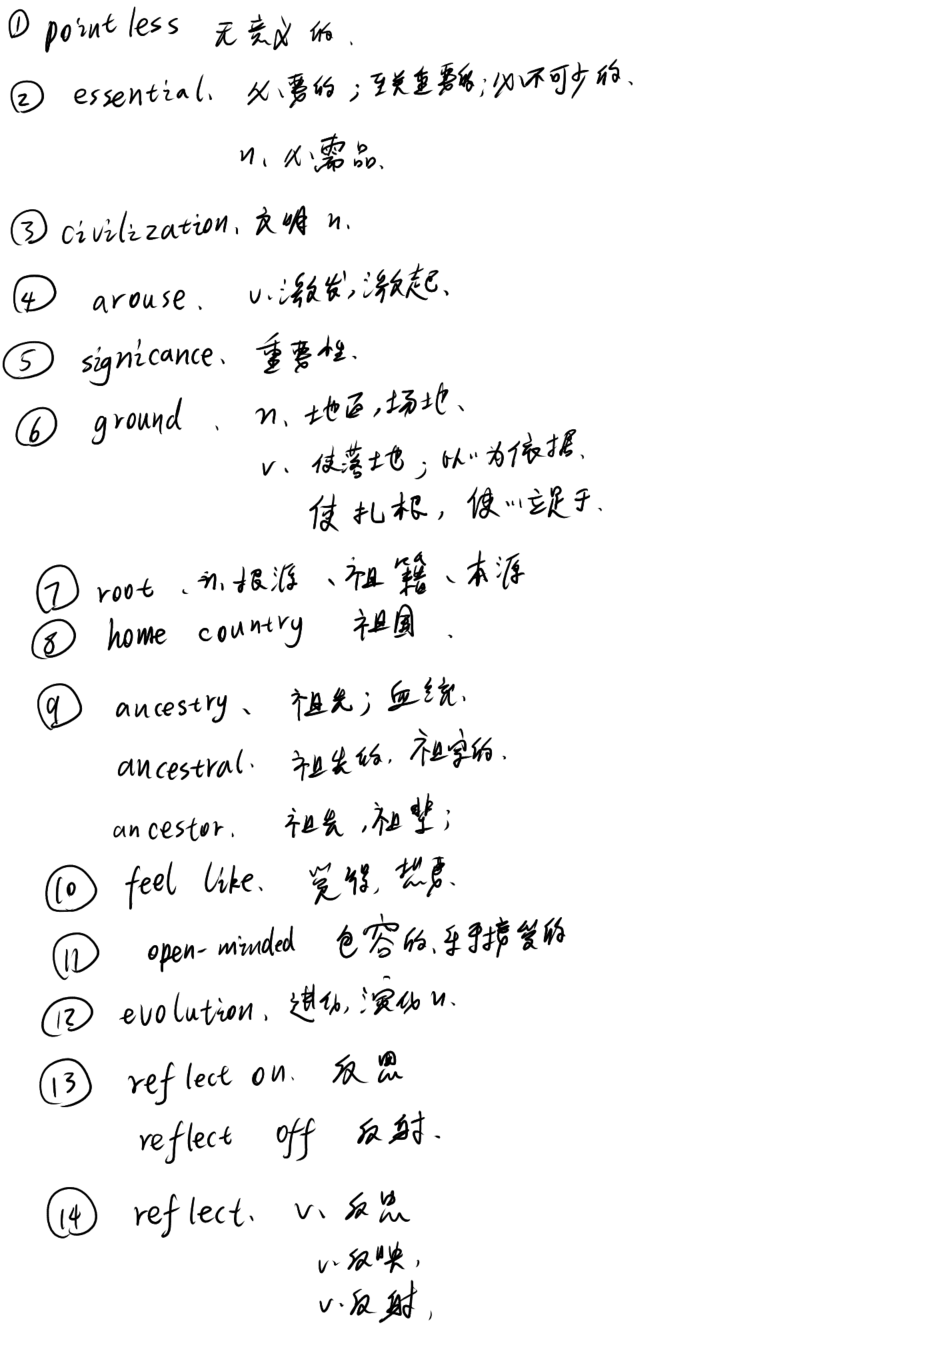 ① pointless 无意义的.
② essential. 必要的；至关重要的；必不可少的.
n. 必需品.
③ civilization. 文明 n.
④ arouse. v.激发,激起.
⑤ signicance. 重要性.
⑥ ground. n. 地区,场地.
v. 使落地；以…为依据.
使扎根, 使…立足于.
⑦ root. n.根源、祖籍、本源
⑧ home country 祖国.
⑨ ancestry、祖先；血统.
ancestral. 祖先的. 祖宗的.
ancestor. 祖先,祖辈；
⑩ feel like. 觉得, 想要.
⑪ open-minded 包容的.乐于接受的
⑫ evolution. 进化,演化 n.
⑬ reflect on. 反思
reflect off 反射.
⑭ reflect. v. 反思
v.反映,
v.反射,